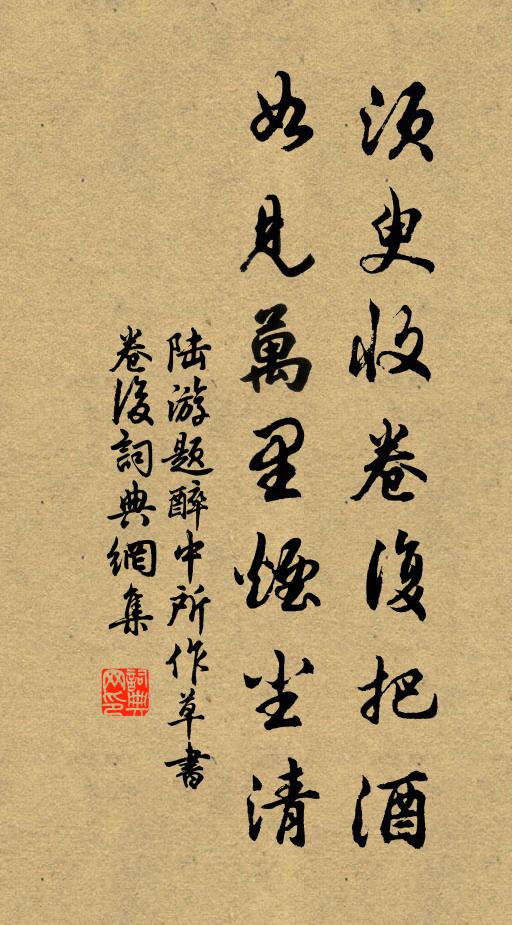 須臾收卷復把酒
如見萬里煙塵清
陸游題醉中所作草書
卷後詞典網集
詞典网印